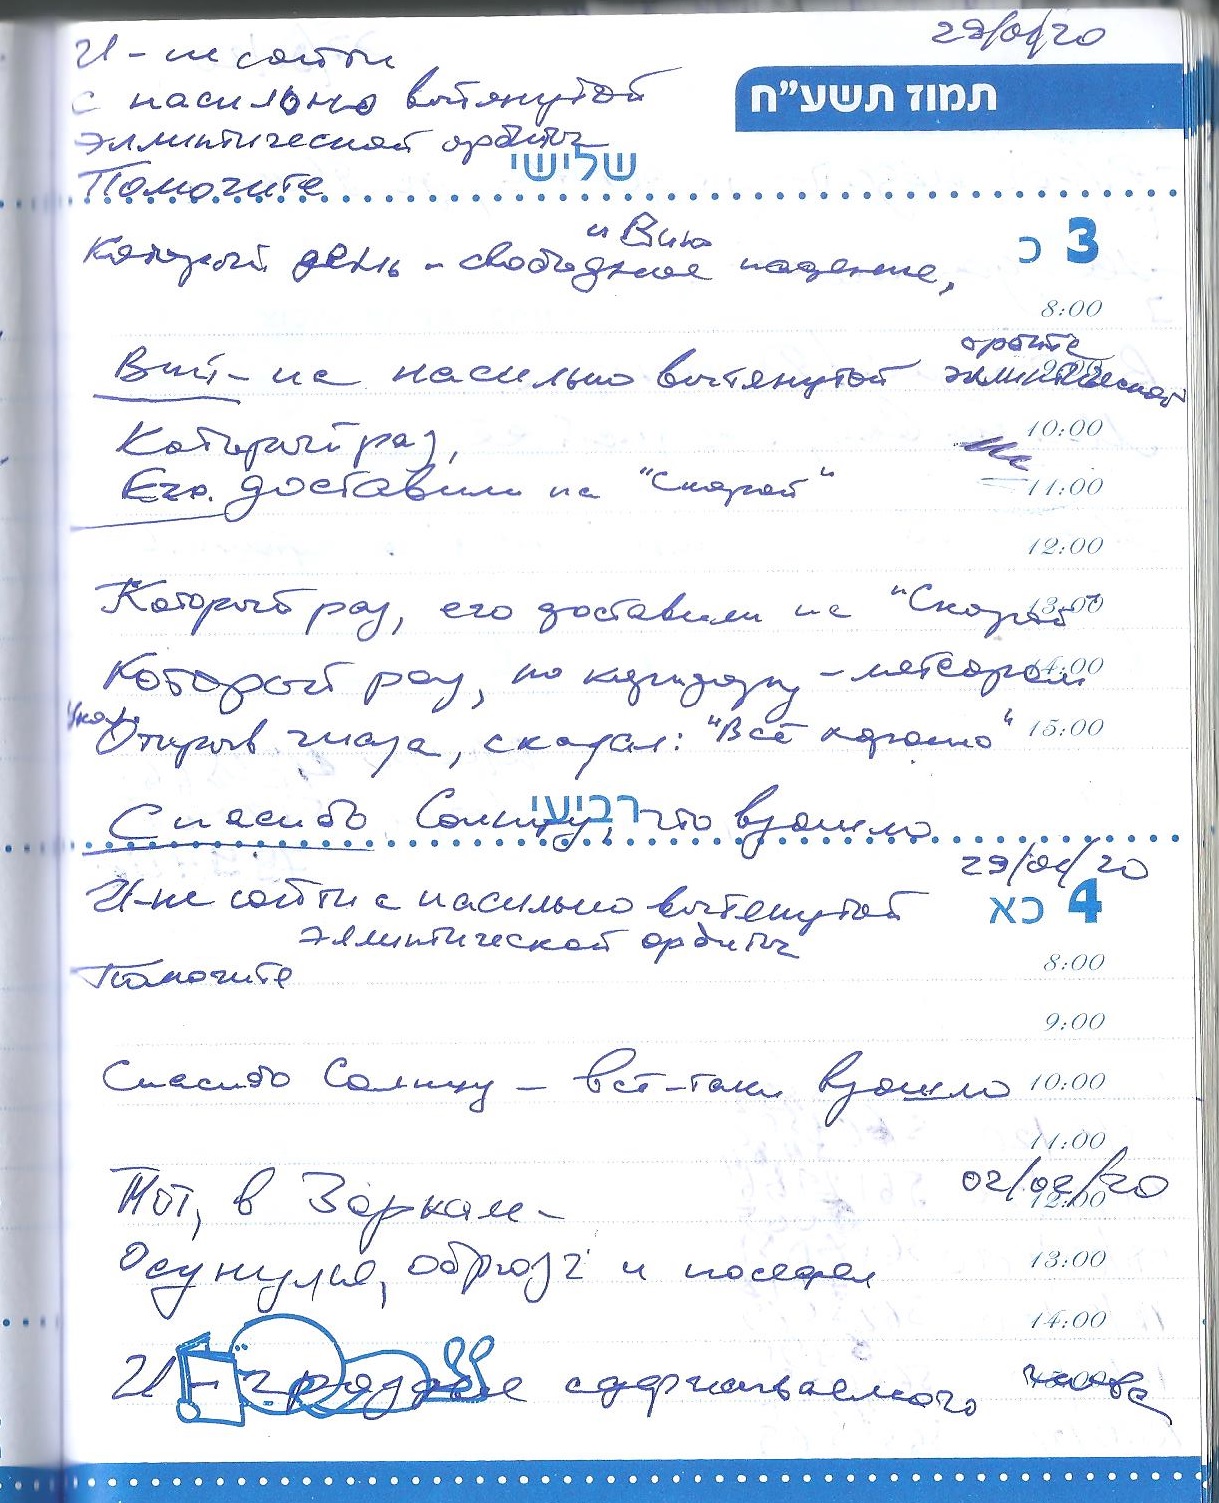 И - не сойти
29/01/20
с насильно вытянутой
תמוז תשע״ח
эллиптической орбиты
שלישי
Помогите
и Вию
3 כ
Который день - свободное падение,
8:00
орбите
Вит - на насильно вытянутой эллиптической
9:00
Который раз,
10:00
Его доставили на "Скорой"
11:00
12:00
Который раз, его доставили на "Скорой"
13:00
Который раз, по коридору - метеором
14:00
Открыв глаза, сказал: "Всё хорошо"
15:00
רביעי
Спасибо Солнцу, что взошло
29/01/20
4 כא
И - не сойти с насильно вытянутой
эллиптической орбиты
8:00
Помогите
9:00
Спасибо Солнцу - всё-таки взошло
10:00
11:00
02/02/20
Тот, в Зеркале -
12:00
Осунулся, оброз и поседел
13:00
14:00
И - сдерживаемого